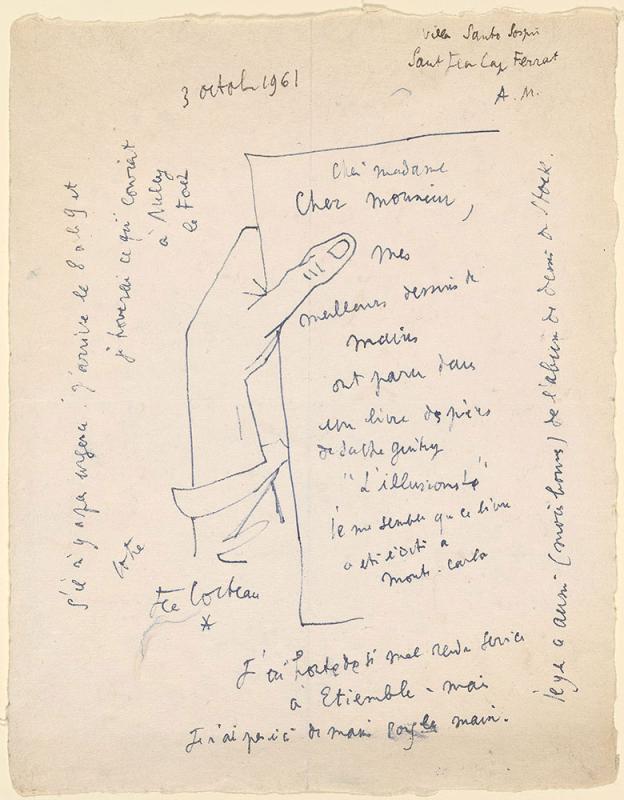 Villa Santo Sospir
Saint Jean Cap Ferrat
A. M.
3 octobre 1961
Cher madame
Cher monsieur,
mes
meilleurs dessins de
mains
ont paru dans
un livre de pièces
de Sacha Guitry
"L'illusionniste"
Il me semble que ce livre
a été édité à
Monte-Carlo
Il y a aussi (moins bons) de l'album de dessins de Stock.
J'ai honte de si mal rendre service
à Etiemble - mais
Je n'ai pas ici de mains sous la main.
Jean Cocteau
*
S'il n'y a pas urgence j'arrive le 8 ou le 9 et
je trouverai ce qui convient
à Milly
la Forêt